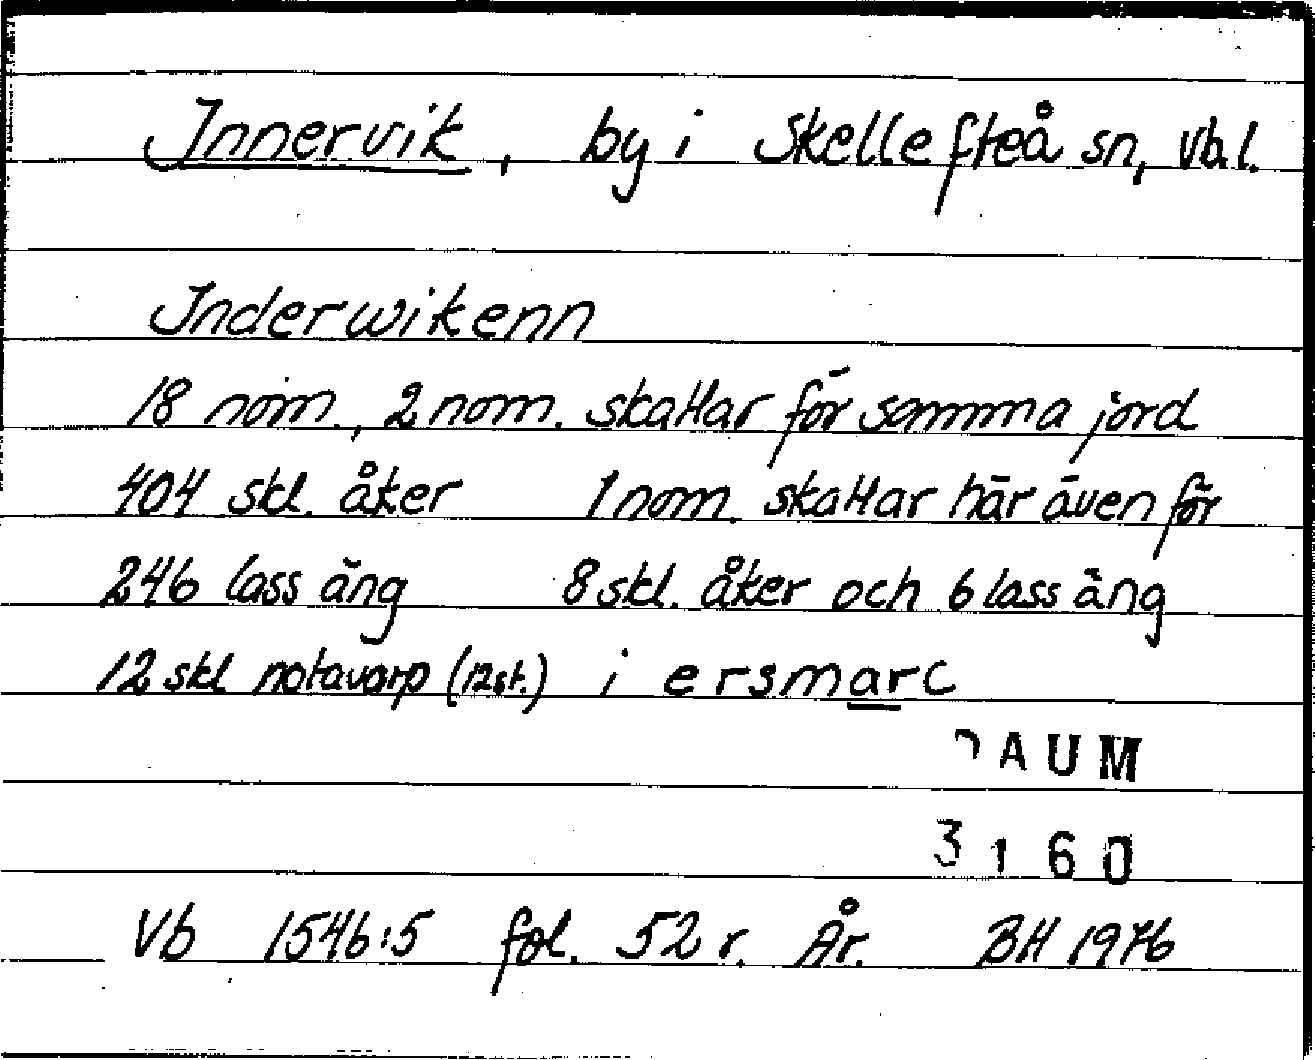 Innervik, by i Skellefteå sn, Vb.l.
Inderwikenn
18 nom., 2 nom. skattar för samma jord
404 skl. åker 1 nom. skattar här även för
246 lass äng 8 skl. åker och 6 lass äng
12 skl notavarp (12st.) i ersmarc
DAUM
3160
Vb 1546:5 fol. 52 r. År. BH 1976